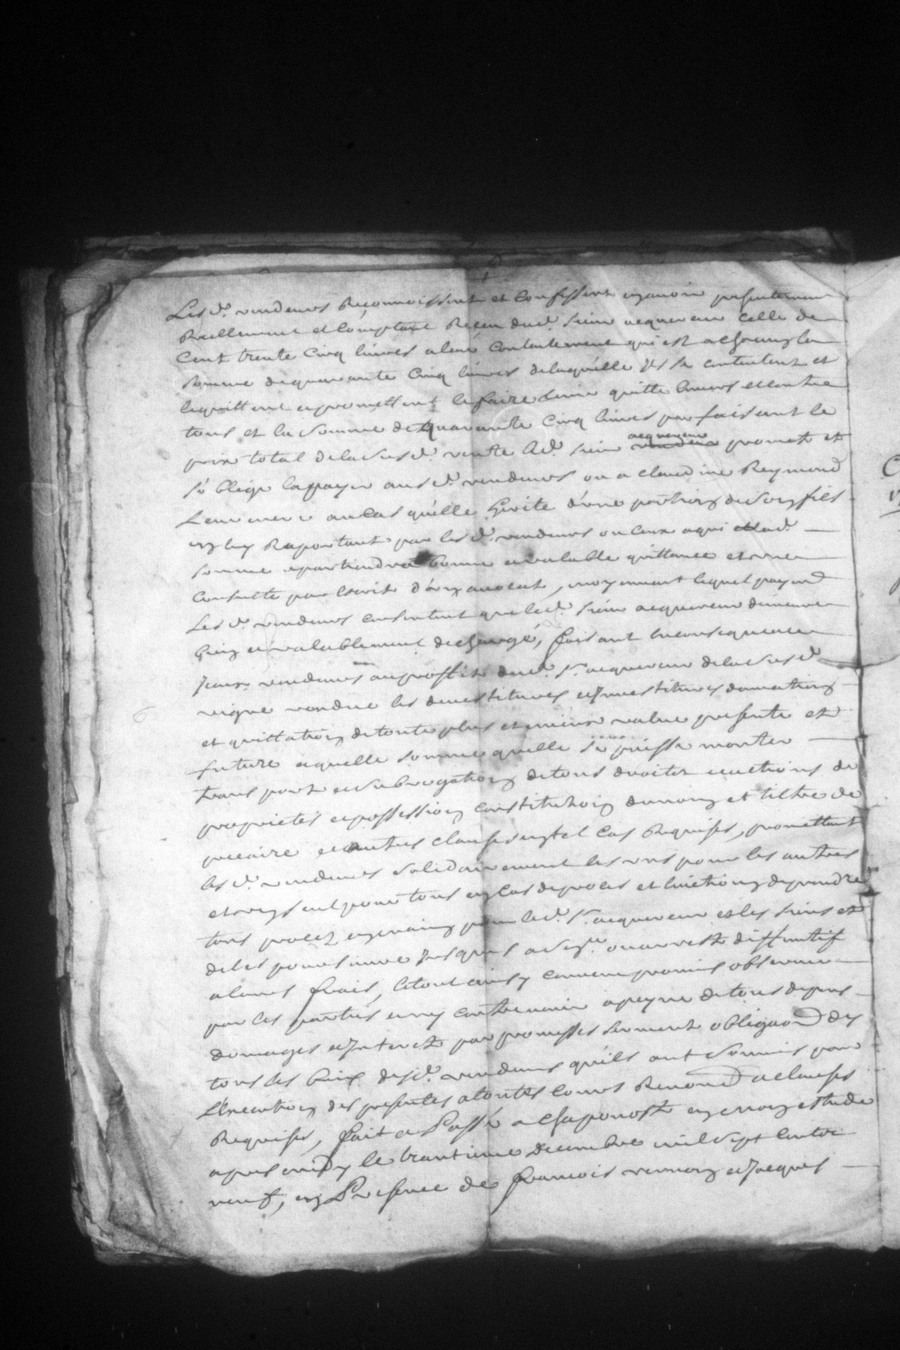 Les d. vendeurs Reconnoissent et Confessent avoir presentement
Reellement et Comptant Receu dud. sieur acquereur Celle de
Cent trente Cinq livres a leur Contentement qui est a
somme de quarante Cinq livres de laquelle ils se contentent et
lequittent et promettent le faire tenir quitte envers et contre
tous et la somme de quarante Cinq livres parfaisant le
prix total de la susd. vente led. sieur acquereur promet et
s'oblige la payer aus d. vendeurs ou a claudine Reymond
Leur mere au cas qu'elle herite d'une portion de son fils
en luy Raportant par les d. vendeurs ou ceux a qui lad.
somme apartiendra bonne et valable quittance et une
Consulte par écrit d'un avocat, moyennant lequel payem.
Les d. vendeurs consentent que led. sieur acquereur demeure
bien et valablement dechargé, faisant en consequence
iceux vendeurs au proffit dud. s. acquereur de la susd.
vigne vendue les devestitures et investitures donation
et quittation de toute plus et moins value presente et
future a quelle somme quelle se puisse monter
transport et subrogation de tous droits et actions de
proprietés et possession constitution du nom et tiltre de
precaire et autres clauses en tel cas Requises, promettant
les d. vendeurs solidairement les uns pour les autres
et un seul pour tous en cas de procès et eviction de prendre
tous procez en main pour led. s. acquereur et les siens et
de les poursuivre jusques a ou arrest diffinitif
a leurs frais, le tout ainsy convenu promis observer
par les parties et n'y contrevenir a peyne de tous depens
domages et interets par promesses serment obligaon de
tous les biens desd. vendeurs qu'ils ont soumis pour
L'execution des presentes a toutes cours Renonc. a clauses
Requises, fait et Passé a Chaponost en mon etude
apres midy le trentieme Decembre mil sept cent
neuf, en Presence de francois et Jacques